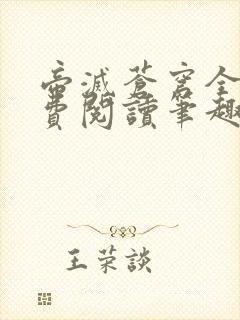 帝滅蒼穹全
費閱讀筆趣
王荣談